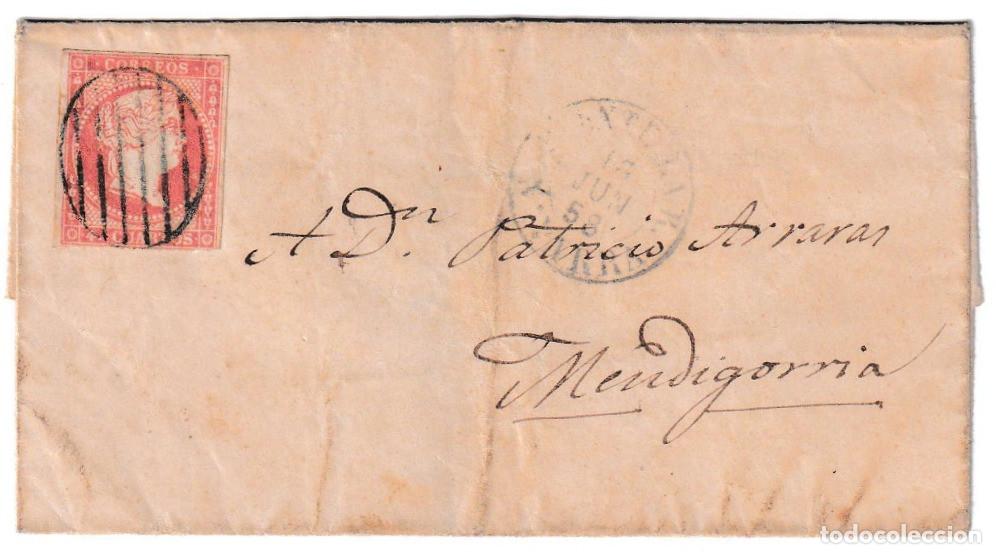 CORREOS
12
JUN
58
A Dn. Patricio Arraras
Mendigorria
todocoleccion